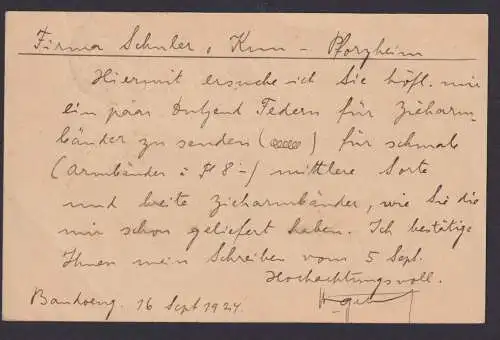 Firma Schuler, Kun - Pforzheim
Hiermit ersuche ich Sie höfl. mir
ein paar Dutzend Federn für Zieharm-
bänder zu senden ( ) für schmale
(Armbänder à 8-) mittlere Sorte
und breite Zieharmbänder, wie Sie die
mir schon geliefert haben. Ich bestätige
Ihnen mein Schreiben vom 5 Sept.
Hochachtungsvoll.
Bandoeng, 16 Sept 1924.